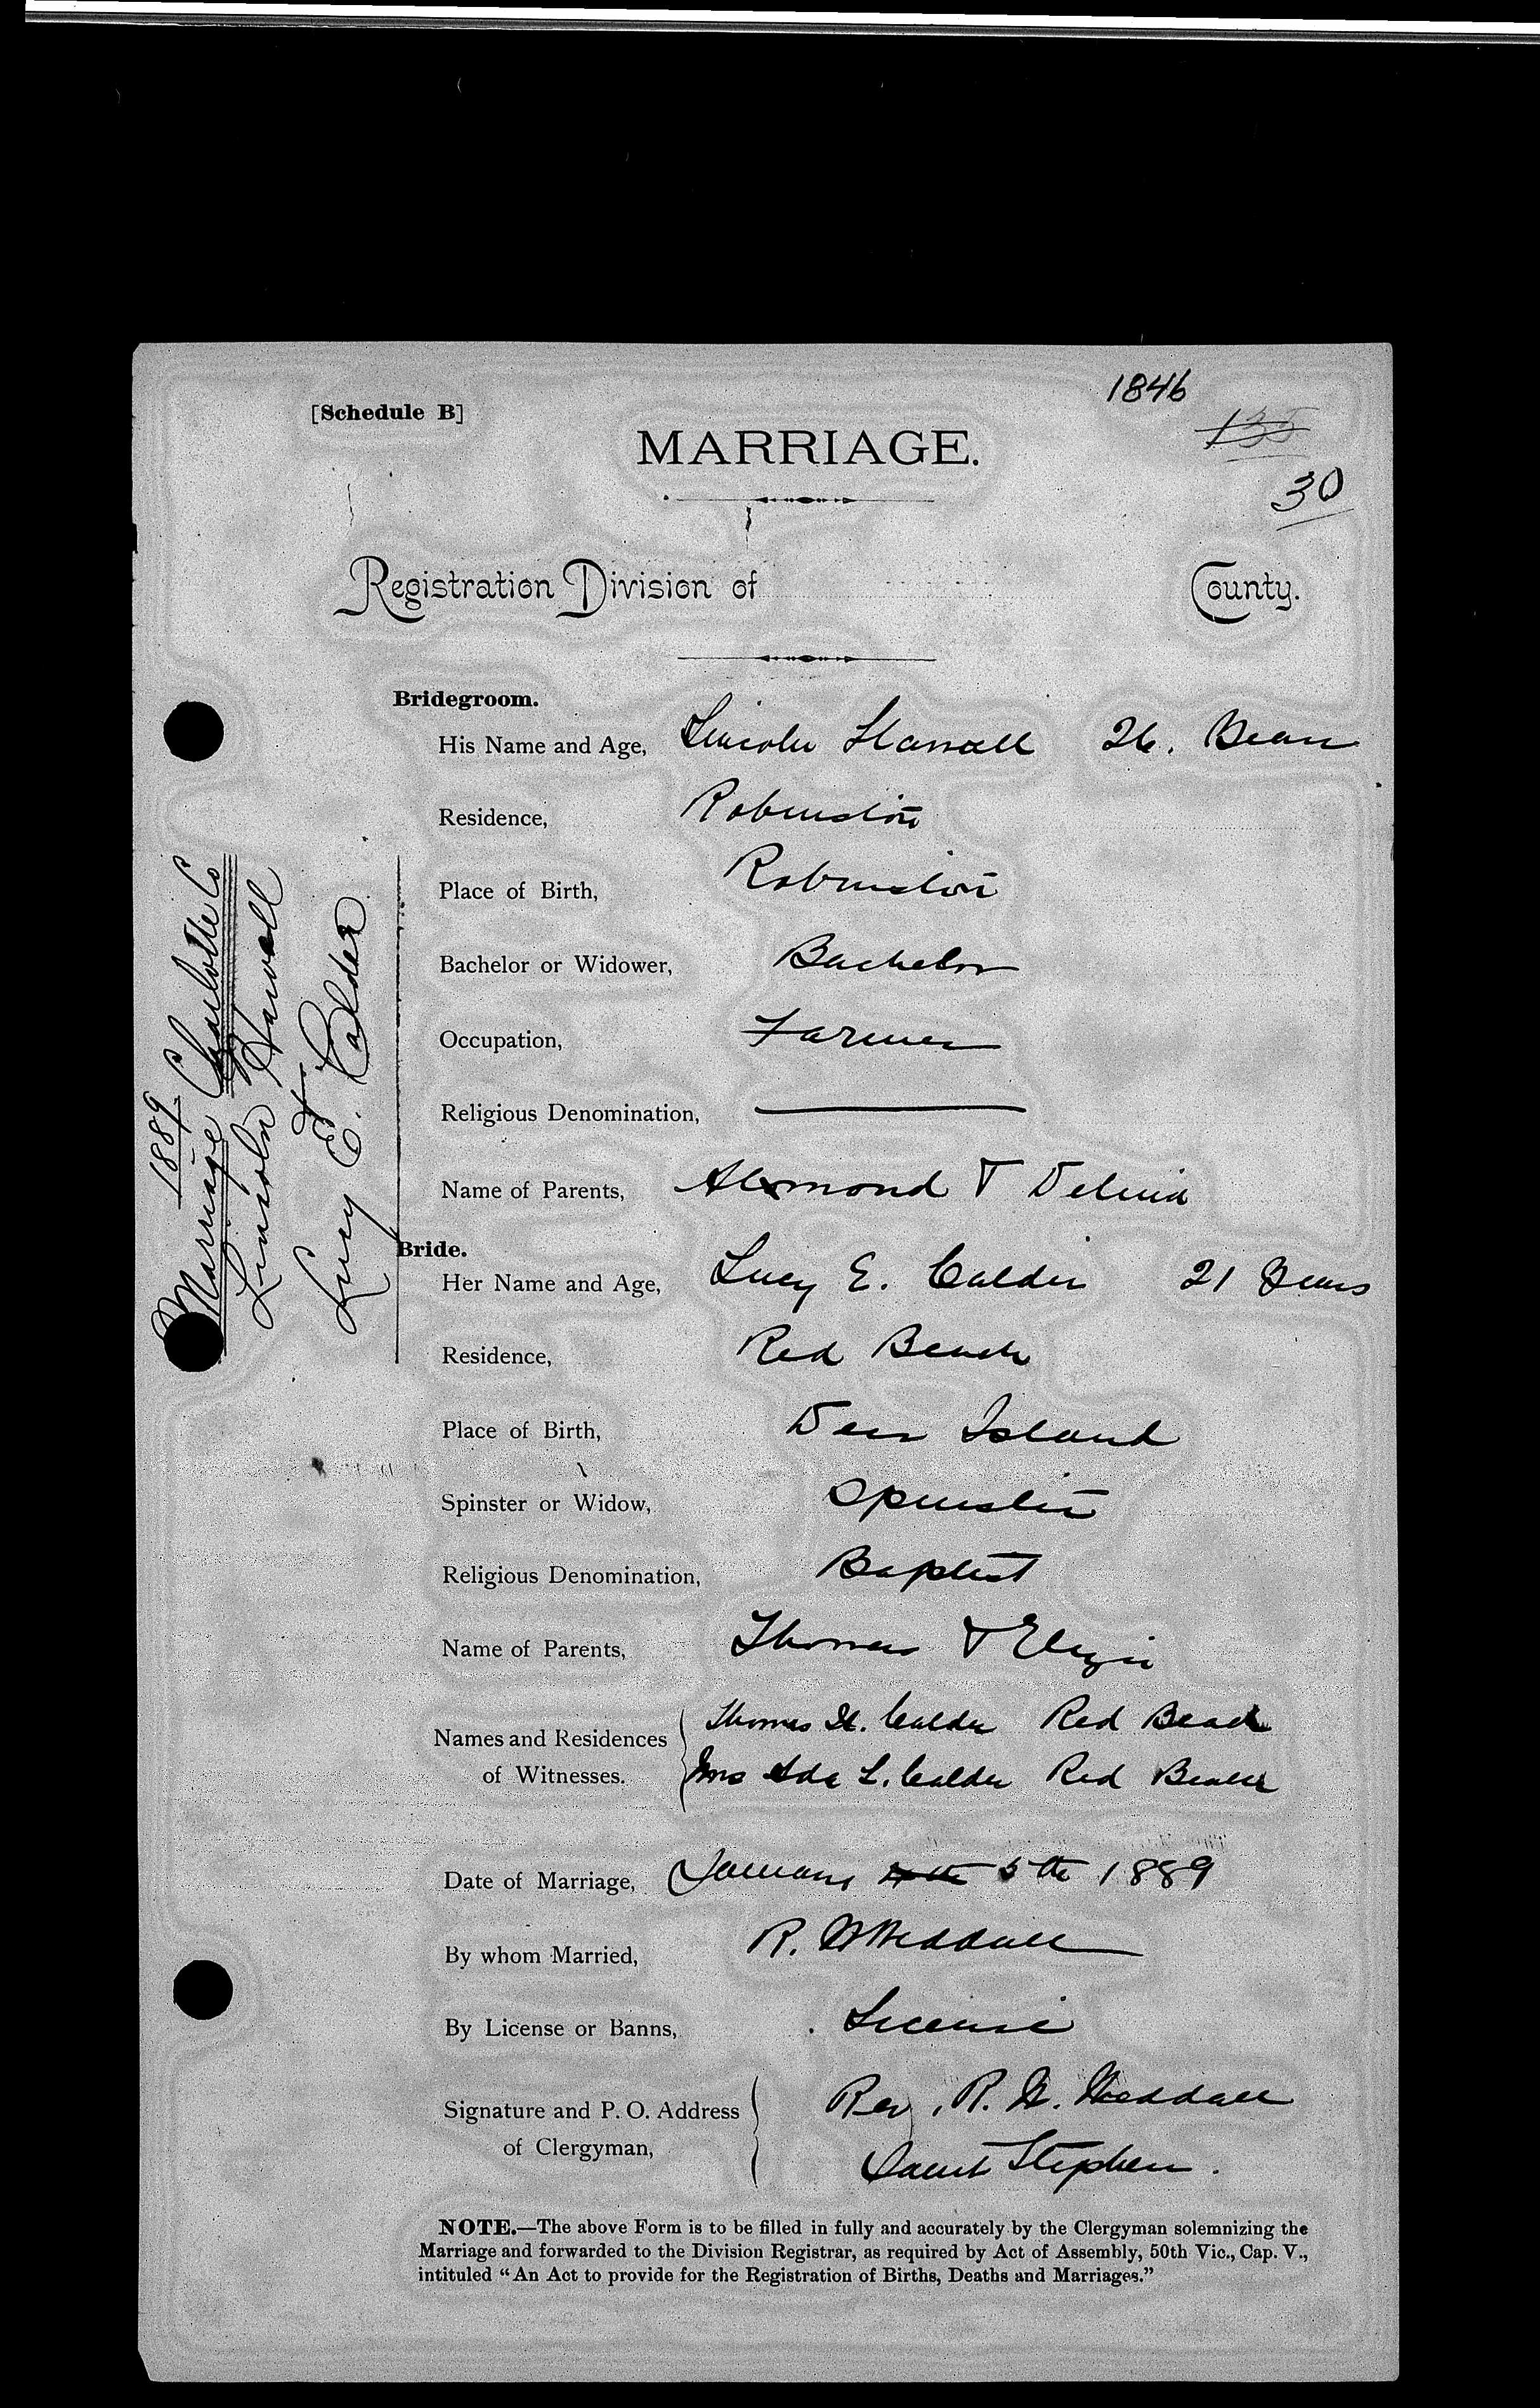 1846
[Schedule B]
135
MARRIAGE.
30
Registration Division of County.
Bridegroom.
His Name and Age, Lincoln 26. Years
Residence, Robinston
Place of Birth, Robinston
Bachelor or Widower, Bachelor
Occupation, Farmer
Religious Denomination,
Name of Parents, Almond & Delina
Bride.
Her Name and Age, Lucy E. Calder 21 Years
Residence, Red Beach
Place of Birth, Deer Island
Spinster or Widow, Spinster
Religious Denomination, Baptist
Name of Parents, Thomas & Eliza
Names and Residences of Witnesses. Thomas H. Calder Red Beach
Mrs Ada L. Calder Red Beach
Date of Marriage, January 4th 5th 1889
By whom Married, R. W Weddall
By License or Banns, License
Signature and P. O. Address of Clergyman, Rev. R. W. Weddall
Saint Stephen.
NOTE.—The above Form is to be filled in fully and accurately by the Clergyman solemnizing the
Marriage and forwarded to the Division Registrar, as required by Act of Assembly, 50th Vic., Cap. V.,
intituled "An Act to provide for the Registration of Births, Deaths and Marriages."
1889
Marriage Charlotte Co
Lincoln
&
Lucy E. Calder